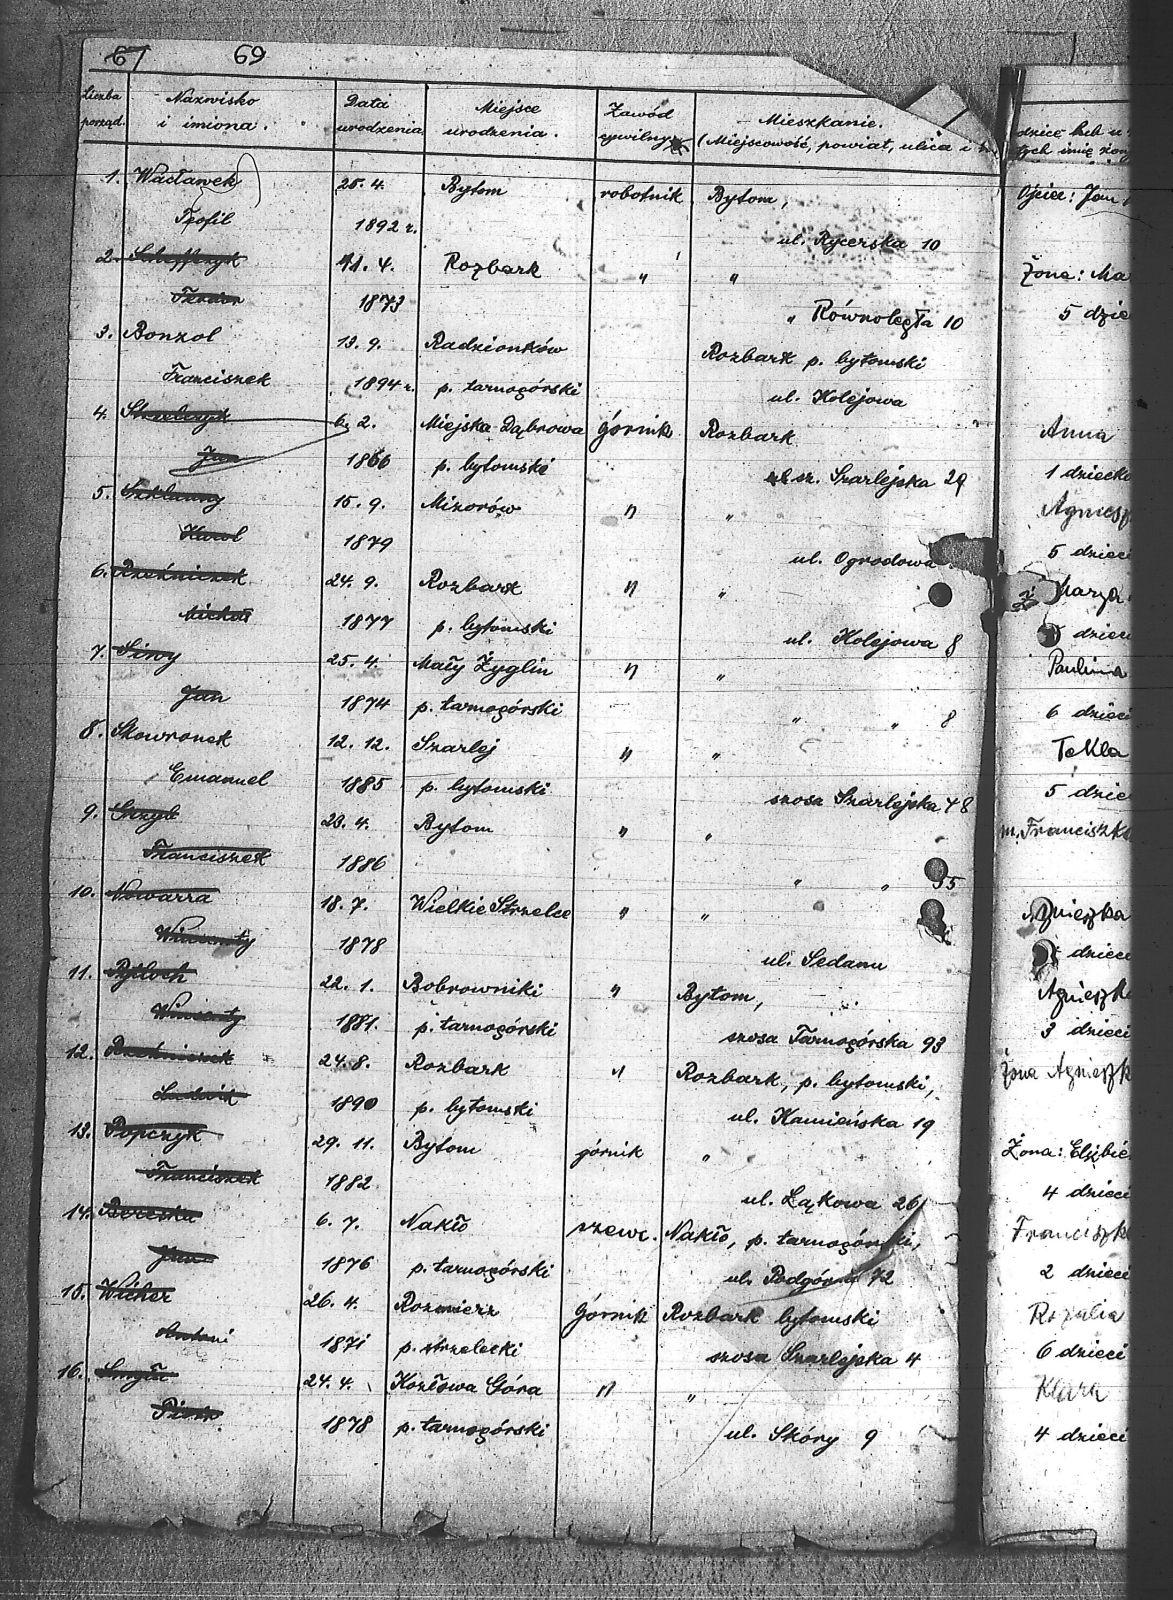 67 69
Liczba porząd. Nazwisko i imiona. Data urodzenia. Miejsce urodzenia. Zawód cywilny Mieszkanie. (Miejscowość, powiat, ulica i
1. Wacławek 25. 4. Bytom robotnik Bytom, Ojciec: Jan
Teofil 1892 r. ul. Rycerska 10
2. Scheffczyk 11. 4. Rozbark " " Żona: Ma
1873 " Równoległa 10 5 dzie
3. Bonzol 13. 9. Radzionków Rozbark p. bytomski
Franciszek 1894 r. p. tarnogórski ul. Kolejowa
4. 6. 2. Miejska Dąbrowa górnik Rozbark Anna
Jan 1866 p. bytomski sz. Szarlejska 29 1 dziecko
5. Szklanny 15. 9. Mizorów " " Agniesz
Karol 1879 ul. Ogrodowa 5 dzieci
6. Rzeźniczek 24. 9. Rozbark " " Marya
Michał 1877 p. bytomski ul. Kolejowa 8 dzieci
7. Siwy 25. 4. Mały Żyglin " " Paulina
Jan 1874 p. tarnogórski " " 8 6 dzieci
8. Skowronek 12. 12. Szarlej " " Tekla
Emanuel 1885 p. bytomski szosa Szarlejska 48 5 dzie
9. Grzyb 23. 4. Bytom " " m. Franciszka
Franciszek 1886 " " 55
10. Nowarra 18. 7. Wielkie Strzelce " " Agnieszka
Wincenty 1878 ul. Sedanu dzieci
11. Pytloch 22. 1. Bobrowniki " Bytom, Agnieszk
Wincenty 1881. p. tarnogórski szosa Tarnogórska 93 3 dzieci
12. Rzeźniczek 24. 8. Rozbark " Rozbark, p. bytomski, Żona Agnieszk
Ludwik 1890 p. bytomski ul. Kamieńska 19
13. Popczyk 29. 11. Bytom górnik " Żona: Elżbie
Franciszek 1882 ul. Łąkowa 26 4 dzieci
14. Bereska 6. 7. Nakło szewc. Nakło, p. tarnogórski, Franciszk
Jan 1876 p. tarnogórski ul. Podgórna 72 2 dzieci
15. Wicher 26. 4. Rozmierz Górnik Rozbark bytomski Rozalia
Antoni 1871 p. strzelecki szosa Szarlejska 4 6 dzieci
16. Smyła 24. 4. Kozłowa Góra " " Klara
Piotr 1878 p. tarnogórski ul. Skóry 9 4 dzieci